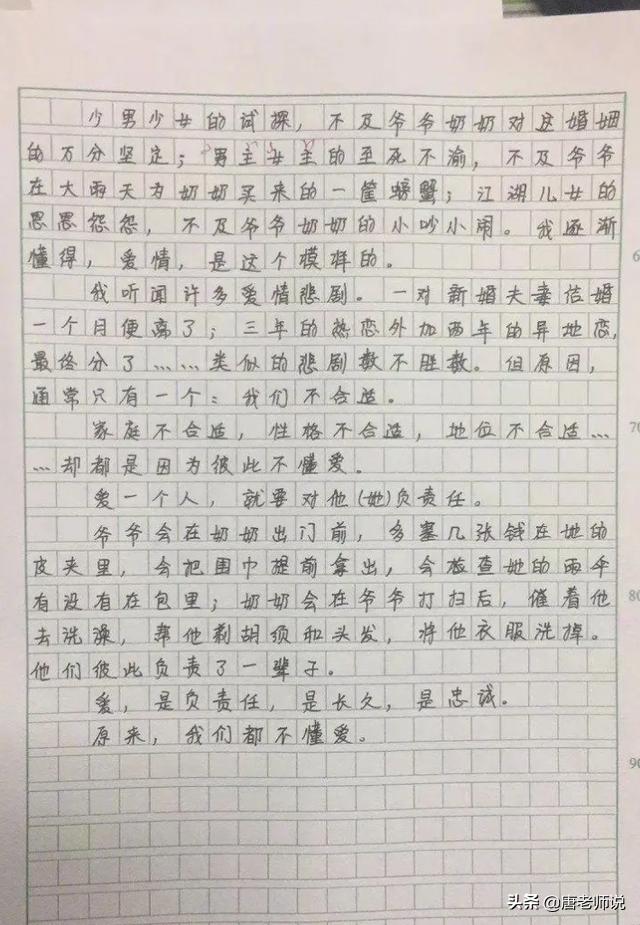 少男少女的试探，不及爷爷奶奶对这婚姻
的万分坚定；男主女主的至死不渝，不及爷爷
在大雨天为奶奶买来的一筐螃蟹；江湖儿女的
恩恩怨怨，不及爷爷奶奶的小吵小闹。我逐渐
懂得，爱情，是这个模样的。
我听闻许多爱情悲剧。一对新婚夫妻结婚
一个月便离了；三年的热恋外加两年的异地恋，
最终分了……类似的悲剧数不胜数。但原因，
通常只有一个：我们不合适。
家庭不合适，性格不合适，地位不合适…
…却都是因为彼此不懂爱。
爱一个人，就要对他(她)负责任。
爷爷会在奶奶出门前，多塞几张钱在她的
皮夹里，会把围巾提前拿出，会检查她的雨伞
有没有在包里；奶奶会在爷爷打扫后，催着他
去洗澡，帮他剃胡须和头发，将他衣服洗掉。
他们彼此负责了一辈子。
爱，是负责任，是长久，是忠诚。
原来，我们都不懂爱。
头条 @唐老师说